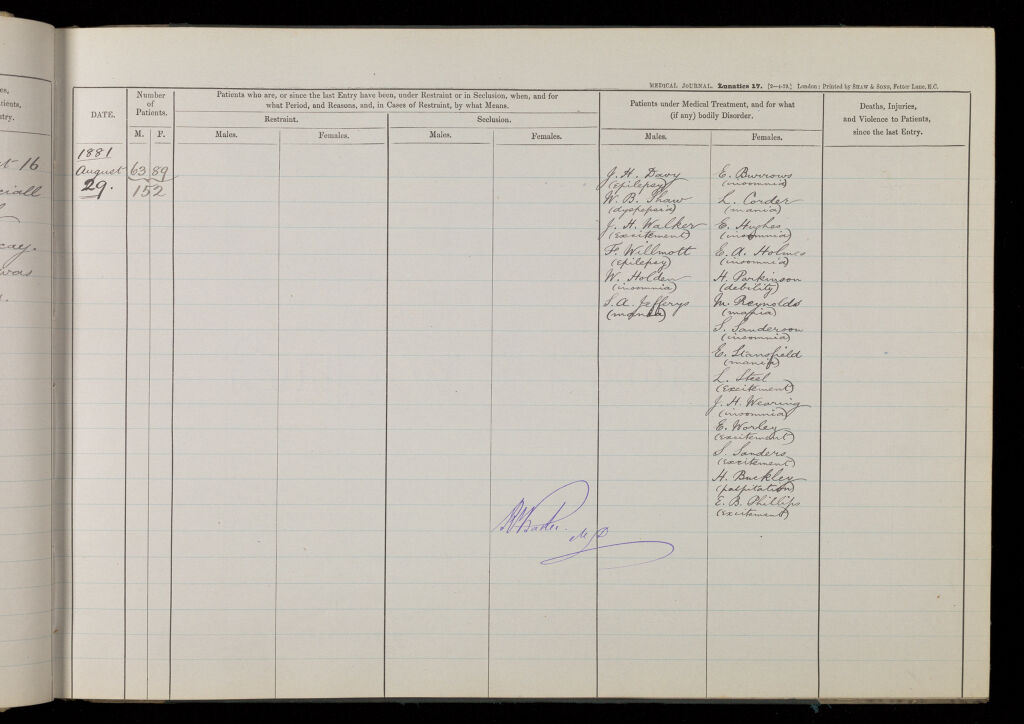 es,
tients,
try.
t 16
ciall
cay.
was
MEDICAL JOURNAL. Lunatics 17. [2—4-79.] London: Printed by SHAW & SONS, Fetter Lane, E.C.
DATE.
Number
of
Patients.
M. F.
Patients who are, or since the last Entry have been, under Restraint or in Seclusion, when, and for
what Period, and Reasons, and, in Cases of Restraint, by what Means.
Restraint.
Seclusion.
Males.
Females.
Males.
Females.
Patients under Medical Treatment, and for what
(if any) bodily Disorder.
Males.
Females.
Deaths, Injuries,
and Violence to Patients,
since the last Entry.
1881
August 63 89
29. 152
J. H. Davy
(epilepsy)
W. B. Shaw
(dyspepsia)
J. H. Walker
(excitement)
F. Willmott
(epilepsy)
W. Holden
(insomnia)
S. A. Jefferys
(mania)
E. Burrows
(insomnia)
L. Corder
(mania)
E. Hughes
(insomnia)
E. A. Holmes
(insomnia)
H. Parkinson
(debility)
M. Reynolds
(mania)
S. Sanderson
(insomnia)
E. Stansfield
(mania)
L. Steel
(excitement)
J. H. Wearing
(insomnia)
E. Worley
(excitement)
S. Sanders
(excitement)
H. Buckley
(palpitation)
E. B. Phillips
(excitement)
M.D.